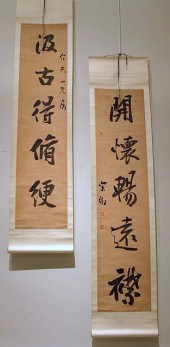 汲古得脩綆
開懷暢遠襟